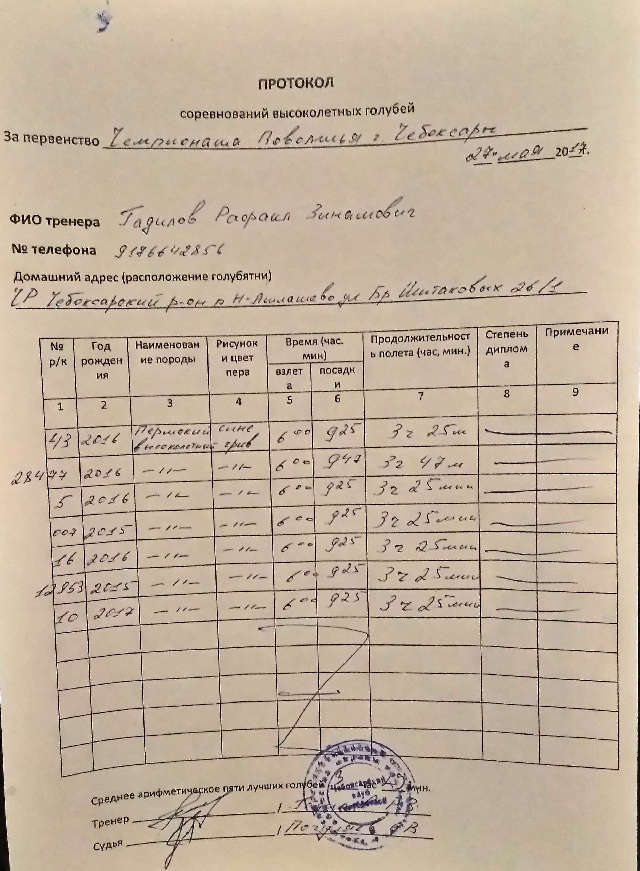 ПРОТОКОЛ
соревнований высоколетных голубей
За первенство Чемпионата Поволжья г. Чебоксары
27 мая 2017.
ФИО тренера Гадилов Рафаил Зинатович
№ телефона 9176642856
Домашний адрес (расположение голубятни)
ЧР Чебоксарский р-он д Н-Ашлашево ул Бр 26/1
№ р/к Год рождения Наименование породы Рисунок и цвет пера Время (час. мин) взлета посадки Продолжительность полета (час, мин.) Степень диплома Примечание
1 2 3 4 5 6 7 8 9
43 2016 Пермский высоколетный сине грив 6 00 9 25 3 ч 25 м
28477 2016 –"– –"– 6 00 9 47 3 ч 47 м
5 2016 –"– –"– 6 00 9 25 3 ч 25 мин
007 2015 –"– –"– 6 00 9 25 3 ч 25 мин
16 2016 –"– –"– 6 00 9 25 3 ч 25 мин
12953 2015 –"– –"– 6 00 9 25 3 ч 25 мин
10 2017 –"– –"– 6 00 9 25 3 ч 25 мин
Среднее арифметическое пяти лучших голубей 3 час мин.
Тренер
Судья
Чебоксарский
клуб